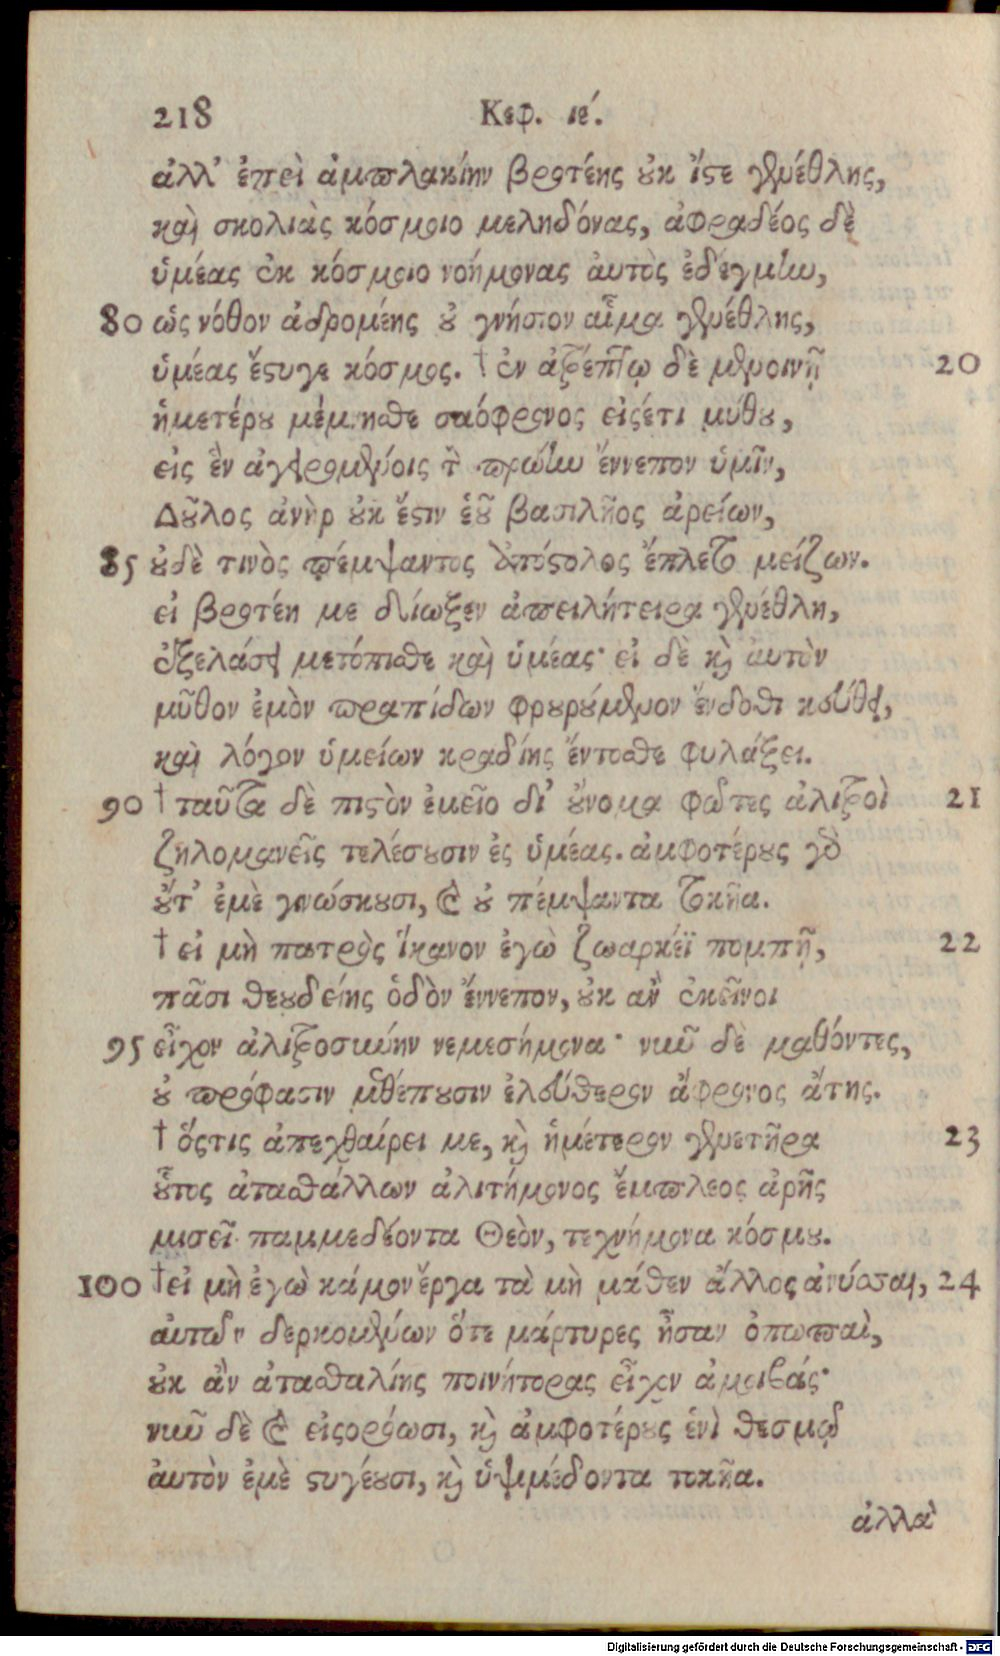 218 Κεφ. ιέ.
ἀλλ' ἐπεὶ ἀμπλακίην βροτέης οὐκ ἴστε γενέθλης,
καὶ σκολιὰς κόσμοιο μεληδόνας, ἀφραδέος δὲ
ὑμέας ἐκ κόσμοιο νοήμονας αὐτὸς ἐδέγμην,
80 ὡς νόθον ἀδρομένης οὐ γνήσιον αἷμα γενέθλης,
ὑμέας ἔστυγε κόσμος. † ἐν ἀτρέπτῳ δὲ μενοινῇ 20
ἡμετέρου μέμνησθε σαόφρονος εἰσέτι μύθου,
εἰς ἓν ἀγειρομένοις τὸν πρώην ἔννεπον ὑμῖν,
Δοῦλος ἀνὴρ οὐκ ἔστιν ἑοῦ βασιλῆος ἀρείων,
85 οὐδὲ τινὸς πέμψαντος ἀπόστολος ἔπλετο μείζων.
εἰ βροτέη με δίωξεν ἀπειλήτειρα γενέθλη,
ἐξελάσει μετόπισθε καὶ ὑμέας· εἰ δὲ καὶ αὐτὸν
μῦθον ἐμὸν πραπίδων φρουρούμενον ἔνδοθι κεύθει,
καὶ λόγον ὑμείων κραδίης ἔντοσθε φυλάξει.
90 † ταῦτα δὲ πιστὸν ἐμεῖο δι' οὔνομα φῶτες ἀλιτροὶ 21
ζηλομανεῖς τελέσουσιν ἐς ὑμέας. ἀμφοτέρους γὰρ
οὔτ' ἐμὲ γινώσκουσι, καὶ οὐ πέμψαντα τοκῆα.
† εἰ μὴ πατρὸς ἵκανον ἐγὼ ζωαρκέϊ πομπῇ, 22
πᾶσι θεουδείης ὁδὸν ἔννεπον, οὐκ ἂν ἐκεῖνοι
95 εἶχον ἀλιτροσύνην νεμεσήμονα· νῦν δὲ μαθόντες,
οὐ πρόφασιν μεθέπουσιν ἐλεύθερον ἄφρονος ἄτης.
† ὅστις ἀπεχθαίρει με, καὶ ἡμέτερον γενετῆρα 23
οὗτος ἀτασθάλλων ἀλιτήμονος ἔμπλεος ἀρῆς
μισεῖ παμμεδέοντα Θεὸν, τεχνήμονα κόσμου.
100 † εἰ μὴ ἐγὼ κάμον ἔργα τὰ μὴ μάθεν ἄλλος ἀνύσσαι, 24
αὐτῶν δερκομένων ὅτε μάρτυρες ἦσαν ὀπωπαὶ,
οὐκ ἂν ἀτασθαλίης ποινήτορας εἶχον ἀμοιβάς·
νῦν δὲ καὶ εἰσορόωσι, καὶ ἀμφοτέρους ἑνὶ θεσμῷ
αὐτὸν ἐμὲ στυγέουσι, καὶ ὑψιμέδοντα τοκῆα.
ἀλλὰ
Digitalisierung gefördert durch die Deutsche Forschungsgemeinschaft - DFG